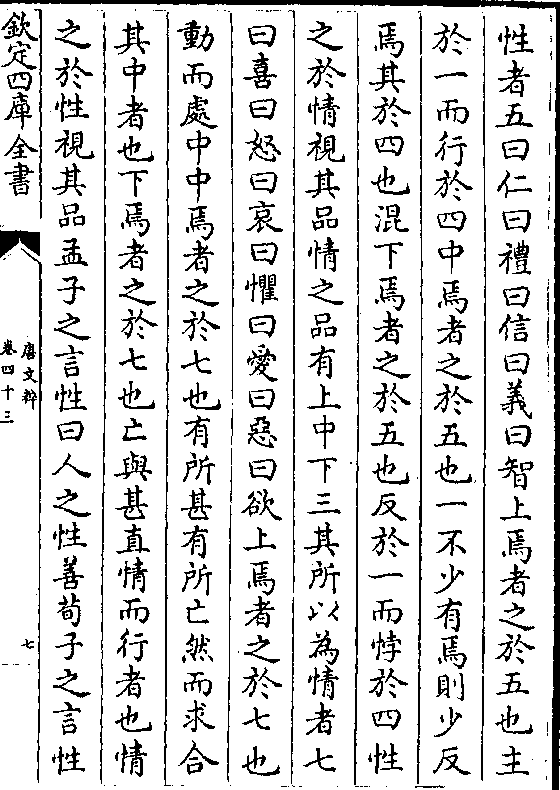 性者五曰仁曰禮曰信曰義曰智上焉者之於五也主
於一而行於四中焉者之於五也一不少有焉則少反
焉其於四也混下焉者之於五也反於一而悖於四性
之於情視其品情之品有上中下三其所以為情者七
曰喜曰怒曰哀曰懼曰愛曰惡曰欲上焉者之於七也
動而處中中焉者之於七也有所甚有所亡然而求合
其中者也下焉者之於七也亡與甚直情而行者也情
之於性視其品孟子之言性曰人之性善荀子之言性
欽定四庫全書
唐文粹
卷四十三
七